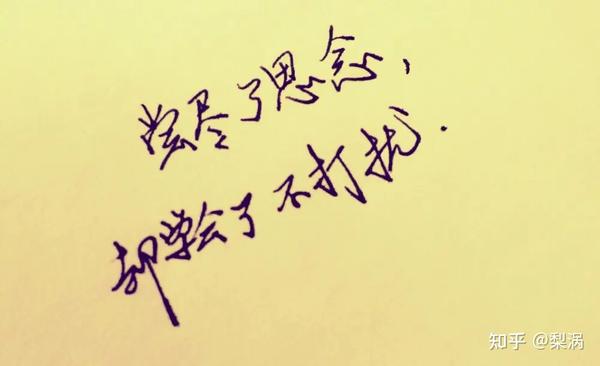 尝尽了思念，
却学会了不打扰.
知乎 @梨涡